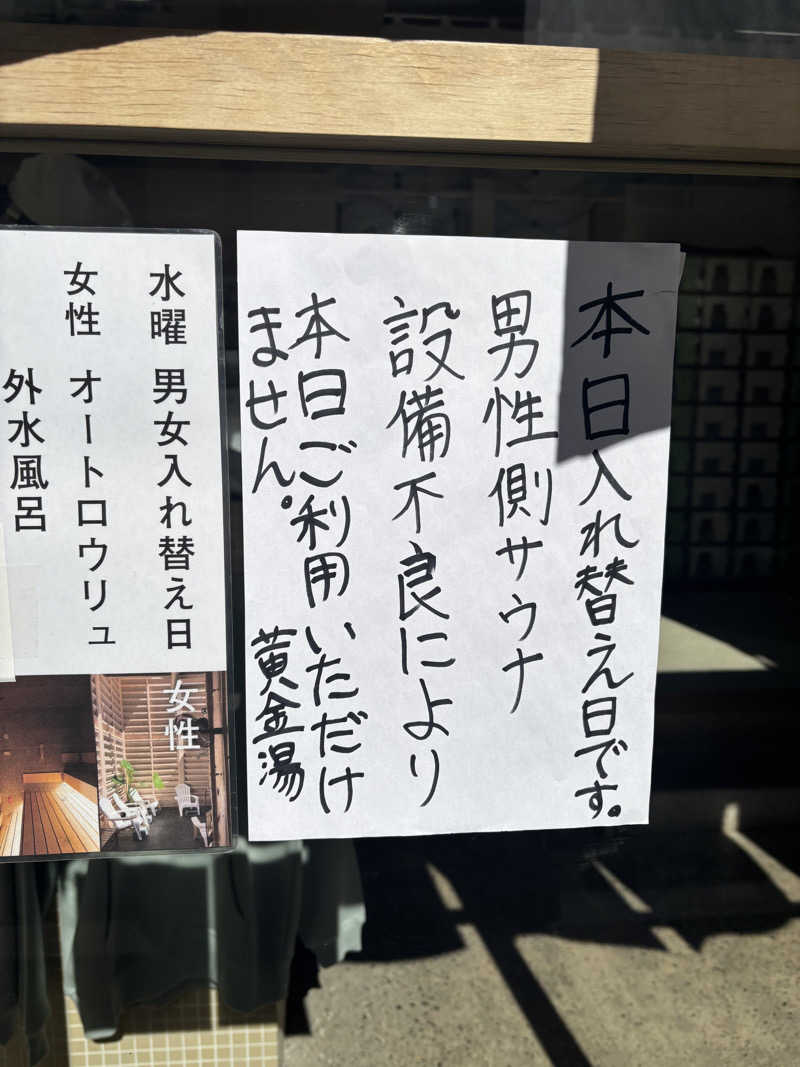 本日入れ替え日です。
男性側サウナ
設備不良により
本日ご利用いただけ
ません。
黄金湯
水曜 男女入れ替え日
女性 オートロウリュ
外水風呂
女性